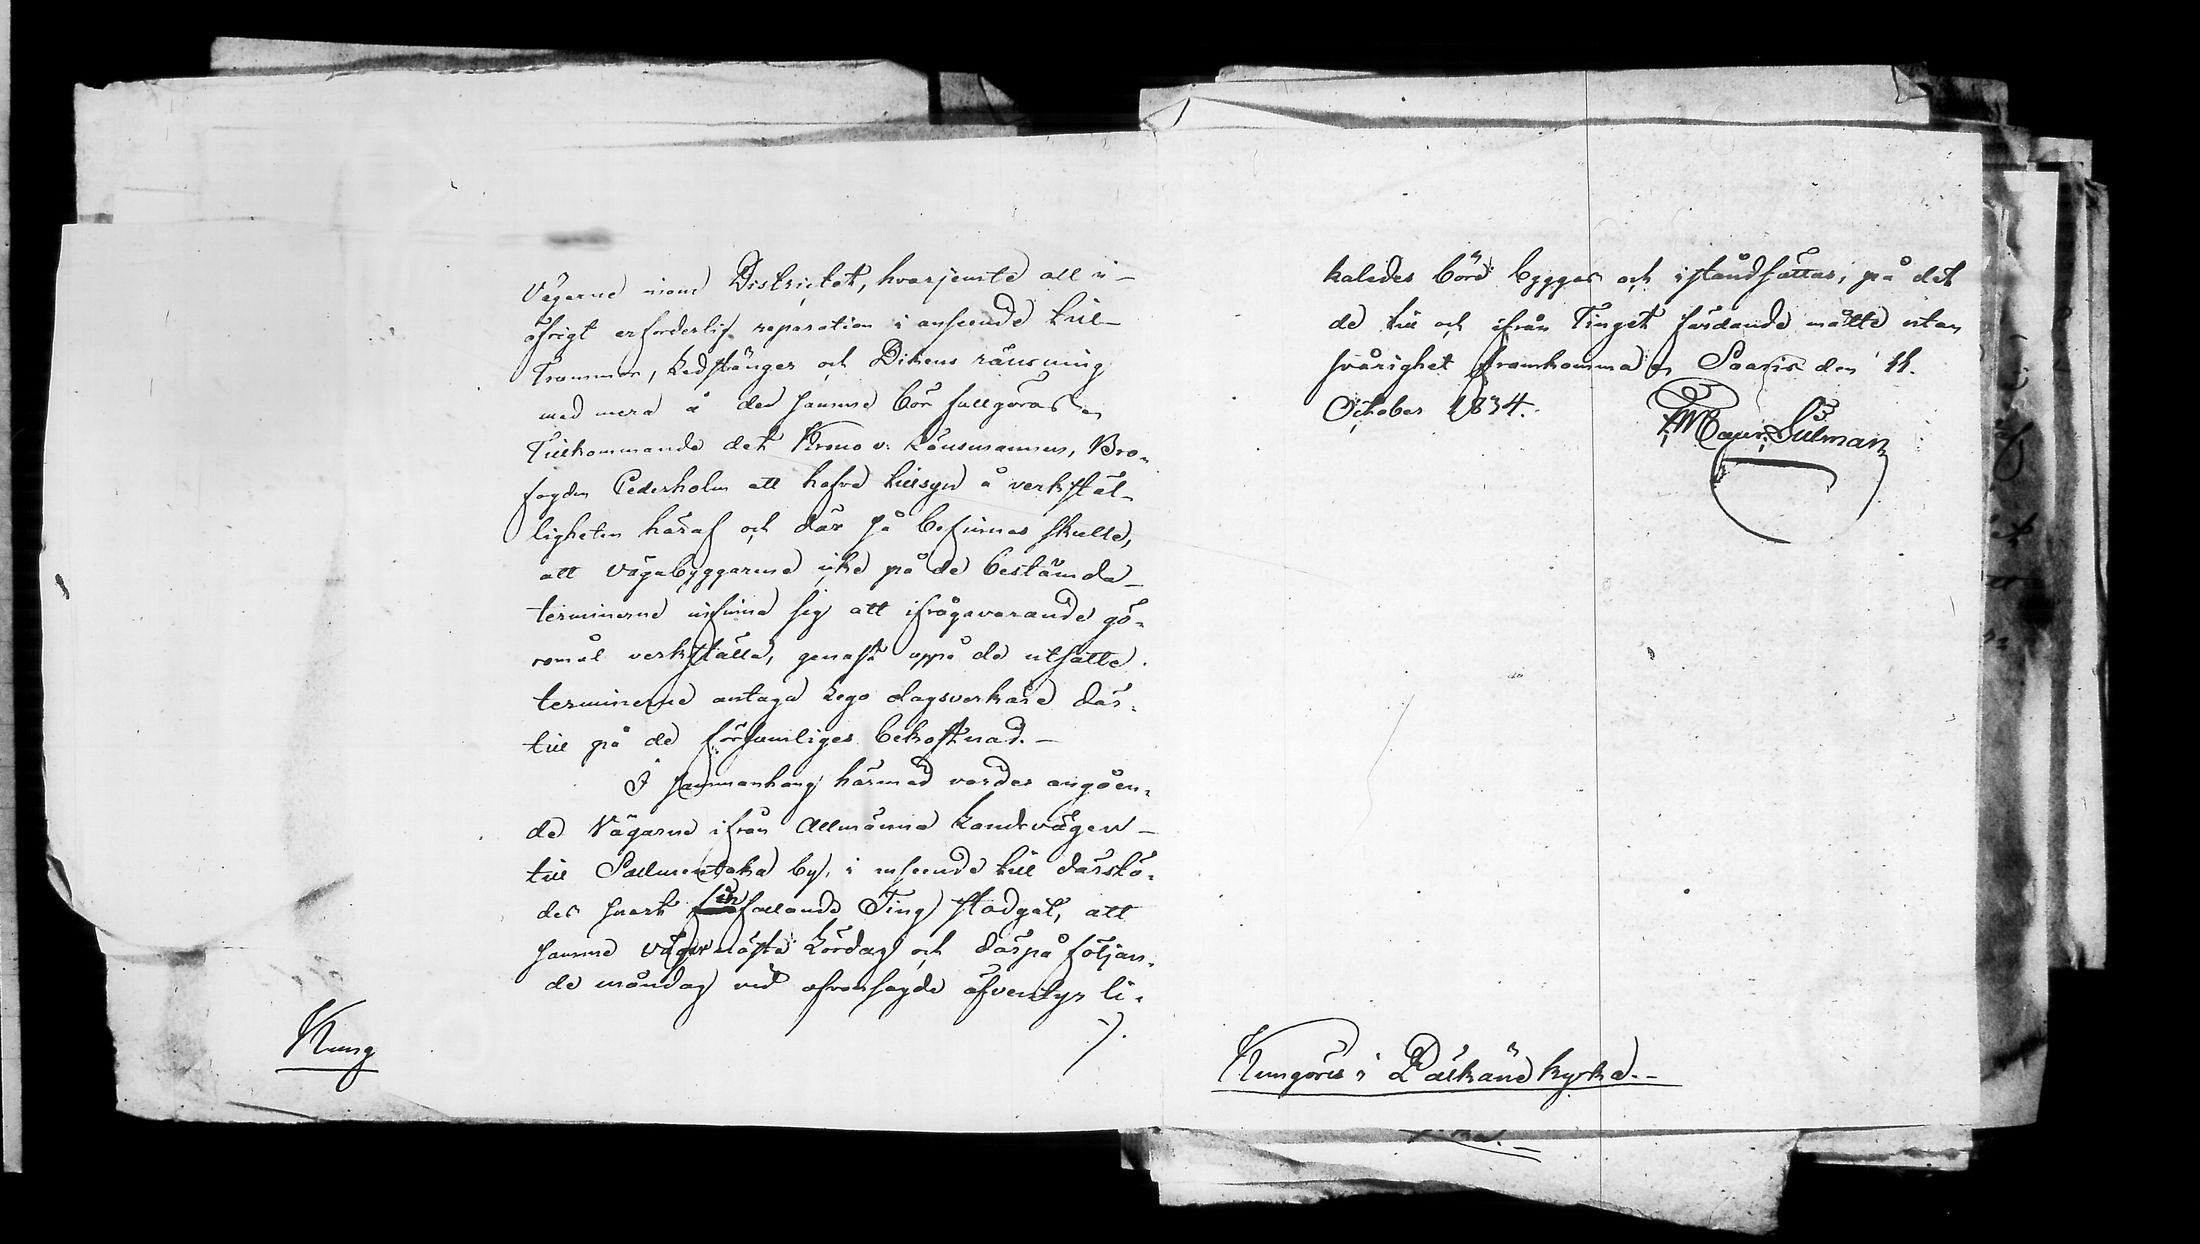 Vägarne inom Districtet, hvarjemte all ü-
öfrigt erforderlig reparation i anseende till
Trummor, Ledstänger och Dikens räusning
med mera å den samme bör fullgöras
Tillkommande det Krono v. Länsmannen, Bro-
fogden Cederholm att hafva tillsyn å verkstäl-
ligheten häraf och där så befinnas skulle,
att vägabyggarne icke på de bestämda
terminerne infinna sig att ifrågavarande gö-
romål verkställa, genast uppå de utsatte
terminerne antaga Lego dagsverkare där-
till på de försumliges bekostnad.-
I sammanhang härmed vardes angåen-
de Vägarne ifrån Allmänna Landsvägen
till Sallmentaka by, i anseende till därstä-
des snart infallande Ting stadgat, att
samme vägar nästa Lördag och därpå följan-
de måndag vid ofvansagde äfventyr li-
kaledes böra byggas och iståndsättas, på det
de till och ifrån Tinget färdande måtte utan
svårighet framkomma Saaris den 11.
October 1834.
Maur. Silman
Kung
Kungöres i Pälkäne kyrka.-